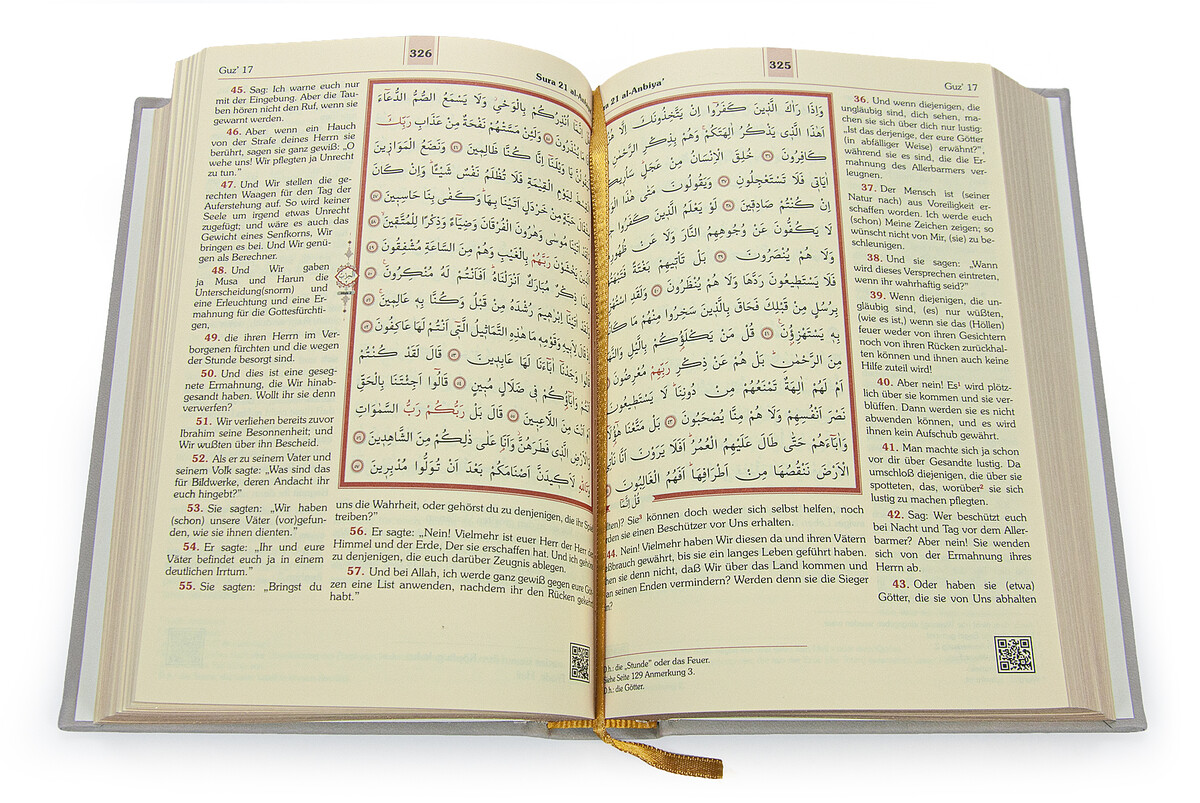 325
Guz' 17
21 al-Anbiya'
وَاِذَا رَاٰكَ الَّذ۪ينَ كَفَرُٓوا اِنْ يَتَّخِذُونَكَ اِلَّا
اَهٰذَا الَّذ۪ي يَذْكُرُ اٰلِهَتَكُمْۚ وَهُمْ بِذِكْرِ الرَّحْمٰنِ
كَافِرُونَ ٣٦ خُلِقَ الْاِنْسَانُ مِنْ عَجَلٍۜ
اٰيَات۪ي فَلَا تَسْتَعْجِلُونِ ٣٧ وَيَقُولُونَ مَتٰى هٰذَا
اِنْ كُنْتُمْ صَادِق۪ينَ ٣٨ لَوْ يَعْلَمُ الَّذ۪ينَ كَفَرُوا
لَا يَكُفُّونَ عَنْ وُجُوهِهِمُ النَّارَ وَلَا عَنْ
وَلَا هُمْ يُنْصَرُونَ ٣٩ بَلْ تَأْت۪يهِمْ بَغْتَةً
فَلَا يَسْتَط۪يعُونَ رَدَّهَا وَلَا هُمْ يُنْظَرُونَ ٤٠ وَلَقَدِ
بِرُسُلٍ مِنْ قَبْلِكَ فَحَاقَ بِالَّذ۪ينَ سَخِرُوا مِنْهُمْ مَا
بِه۪ يَسْتَهْزِؤُ۫نَ ٤١ قُلْ مَنْ يَكْلَؤُ۬كُمْ بِالَّيْلِ
مِنَ الرَّحْمٰنِۜ بَلْ هُمْ عَنْ ذِكْرِ رَبِّهِمْ مُعْرِضُونَ
اَمْ لَهُمْ اٰلِهَةٌ تَمْنَعُهُمْ مِنْ دُونِنَاۜ لَا يَسْتَط۪يعُونَ
نَصْرَ اَنْفُسِهِمْ وَلَا هُمْ مِنَّا يُصْحَبُونَ ٤٣ بَلْ مَتَّعْنَا
وَاٰبَٓاءَهُمْ حَتّٰى طَالَ عَلَيْهِمُ الْعُمُرُۜ اَفَلَا يَرَوْنَ اَنَّا
الْاَرْضَ نَنْقُصُهَا مِنْ اَطْرَافِهَاۜ اَفَهُمُ الْغَالِبُونَ
قُلْ اِنَّمَٓا
36. Und wenn diejenigen, die
ungläubig sind, dich sehen, ma-
chen sie sich über dich nur lustig:
„Ist das derjenige, der eure Götter
(in abfälliger Weise) erwähnt?“,
während sie es sind, die die Er-
mahnung des Allerbarmers ver-
leugnen.
37. Der Mensch ist (seiner
Natur nach) aus Voreiligkeit er-
schaffen worden. Ich werde euch
(schon) Meine Zeichen zeigen; so
wünscht nicht von Mir, (sie) zu be-
schleunigen.
38. Und sie sagen: „Wann
wird dieses Versprechen eintreten,
wenn ihr wahrhaftig seid?“
39. Wenn diejenigen, die un-
gläubig sind, (es) nur wüßten,
(wie es ist,) wenn sie das (Höllen)
feuer weder von ihren Gesichtern
noch von ihren Rücken zurückhal-
ten können und ihnen auch keine
Hilfe zuteil wird!
40. Aber nein! Es¹ wird plötz-
lich über sie kommen und sie ver-
blüffen. Dann werden sie es nicht
abwenden können, und es wird
ihnen kein Aufschub gewährt.
41. Man machte sich ja schon
vor dir über Gesandte lustig. Da
umschloß diejenigen, die über sie
spotteten, das, worüber² sie sich
lustig zu machen pflegten.
42. Sag: Wer beschützt euch
bei Nacht und Tag vor dem Aller-
barmer? Aber nein! Sie wenden
sich von der Ermahnung ihres
Herrn ab.
43. Oder haben sie (etwa)
Götter, die sie von Uns abhalten
Sie³ können doch weder sich selbst helfen, noch
sie einen Beschützer vor Uns erhalten.
44. Nein! Vielmehr haben Wir diesen da und ihren Vätern
gewährt, bis sie ein langes Leben geführt haben.
sie denn nicht, daß Wir über das Land kommen und
an seinen Enden vermindern? Werden denn sie die Sieger
die „Stunde“ oder das Feuer.
Seite 129 Anmerkung 3.
die Götter.
326
Guz' 17
Sura 21
اُنْذِرُكُمْ بِالْوَحْيِۘ وَلَا يَسْمَعُ الصُّمُّ الدُّعَٓاءَ
وَلَئِنْ مَسَّتْهُمْ نَفْحَةٌ مِنْ عَذَابِ رَبِّكَ
يَا وَيْلَنَٓا اِنَّا كُنَّا ظَالِم۪ينَ ٤٦ وَنَضَعُ الْمَوَاز۪ينَ
لِيَوْمِ الْقِيٰمَةِ فَلَا تُظْلَمُ نَفْسٌ شَيْـًٔاۜ وَاِنْ كَانَ
مِنْ خَرْدَلٍ اَتَيْنَا بِهَاۜ وَكَفٰى بِنَا حَاسِب۪ينَ ٤٧
مُوسٰى وَهٰرُونَ الْفُرْقَانَ وَضِيَٓاءً وَذِكْرًا لِلْمُتَّق۪ينَ ٤٨
يَخْشَوْنَ رَبَّهُمْ بِالْغَيْبِ وَهُمْ مِنَ السَّاعَةِ مُشْفِقُونَ ٤٩
ذِكْرٌ مُبَارَكٌ اَنْزَلْنَاهُۜ اَفَاَنْتُمْ لَهُ مُنْكِرُونَ ٥٠
اِبْرٰه۪يمَ رُشْدَهُ مِنْ قَبْلُ وَكُنَّا بِه۪ عَالِم۪ينَ ٥١
لِاَب۪يهِ وَقَوْمِه۪ مَا هٰذِهِ التَّمَاث۪يلُ الَّت۪ٓي اَنْتُمْ لَهَا عَاكِفُونَ ٥٢
وَجَدْنَٓا اٰبَٓاءَنَا لَهَا عَابِد۪ينَ ٥٣ قَالَ لَقَدْ كُنْتُمْ
وَاٰبَٓاؤُ۬كُمْ ف۪ي ضَلَالٍ مُب۪ينٍ ٥٤ قَالُٓوا اَجِئْتَنَا بِالْحَقِّ
اَنْتَ مِنَ اللَّاعِب۪ينَ ٥٥ قَالَ بَلْ رَبُّكُمْ رَبُّ السَّمٰوَاتِ
وَالْاَرْضِ الَّذ۪ي فَطَرَهُنَّۘ وَاَنَا۬ عَلٰى ذٰلِكُمْ مِنَ الشَّاهِد۪ينَ ٥٦
لَاَك۪يدَنَّ اَصْنَامَكُمْ بَعْدَ اَنْ تُوَلُّوا مُدْبِر۪ينَ ٥٧
45. Sag: Ich warne euch nur
mit der Eingebung. Aber die Tau-
ben hören nicht den Ruf, wenn sie
gewarnt werden.
46. Aber wenn ein Hauch
von der Strafe deines Herrn sie
berührt, sagen sie ganz gewiß: „O
wehe uns! Wir pflegten ja Unrecht
zu tun.“
47. Und Wir stellen die ge-
rechten Waagen für den Tag der
Auferstehung auf. So wird keiner
Seele um irgend etwas Unrecht
zugefügt; und wäre es auch das
Gewicht eines Senfkorns, Wir
bringen es bei. Und Wir genü-
gen als Berechner.
48. Und Wir gaben
ja Musa und Harun die
Unterscheidung(snorm) und
eine Erleuchtung und eine Er-
mahnung für die Gottesfürchti-
gen,
49. die ihren Herrn im Ver-
borgenen fürchten und die wegen
der Stunde besorgt sind.
50. Und dies ist eine geseg-
nete Ermahnung, die Wir hinab-
gesandt haben. Wollt ihr sie denn
verwerfen?
51. Wir verliehen bereits zuvor
Ibrahim seine Besonnenheit; und
Wir wußten über ihn Bescheid.
52. Als er zu seinem Vater und
seinem Volk sagte: „Was sind das
für Bildwerke, deren Andacht ihr
euch hingebt?“
53. Sie sagten: „Wir haben
(schon) unsere Väter (vor)gefun-
den, wie sie ihnen dienten.“
54. Er sagte: „Ihr und eure
Väter befindet euch ja in einem
deutlichen Irrtum.“
55. Sie sagten: „Bringst du
uns die Wahrheit, oder gehörst du zu denjenigen, die ihr
treiben?“
56. Er sagte: „Nein! Vielmehr ist euer Herr der Herr der
Himmel und der Erde, Der sie erschaffen hat. Und ich
zu denjenigen, die euch darüber Zeugnis ablegen.
57. Und bei Allah, ich werde ganz gewiß gegen eure
zen eine List anwenden, nachdem ihr den Rücken
habt.“